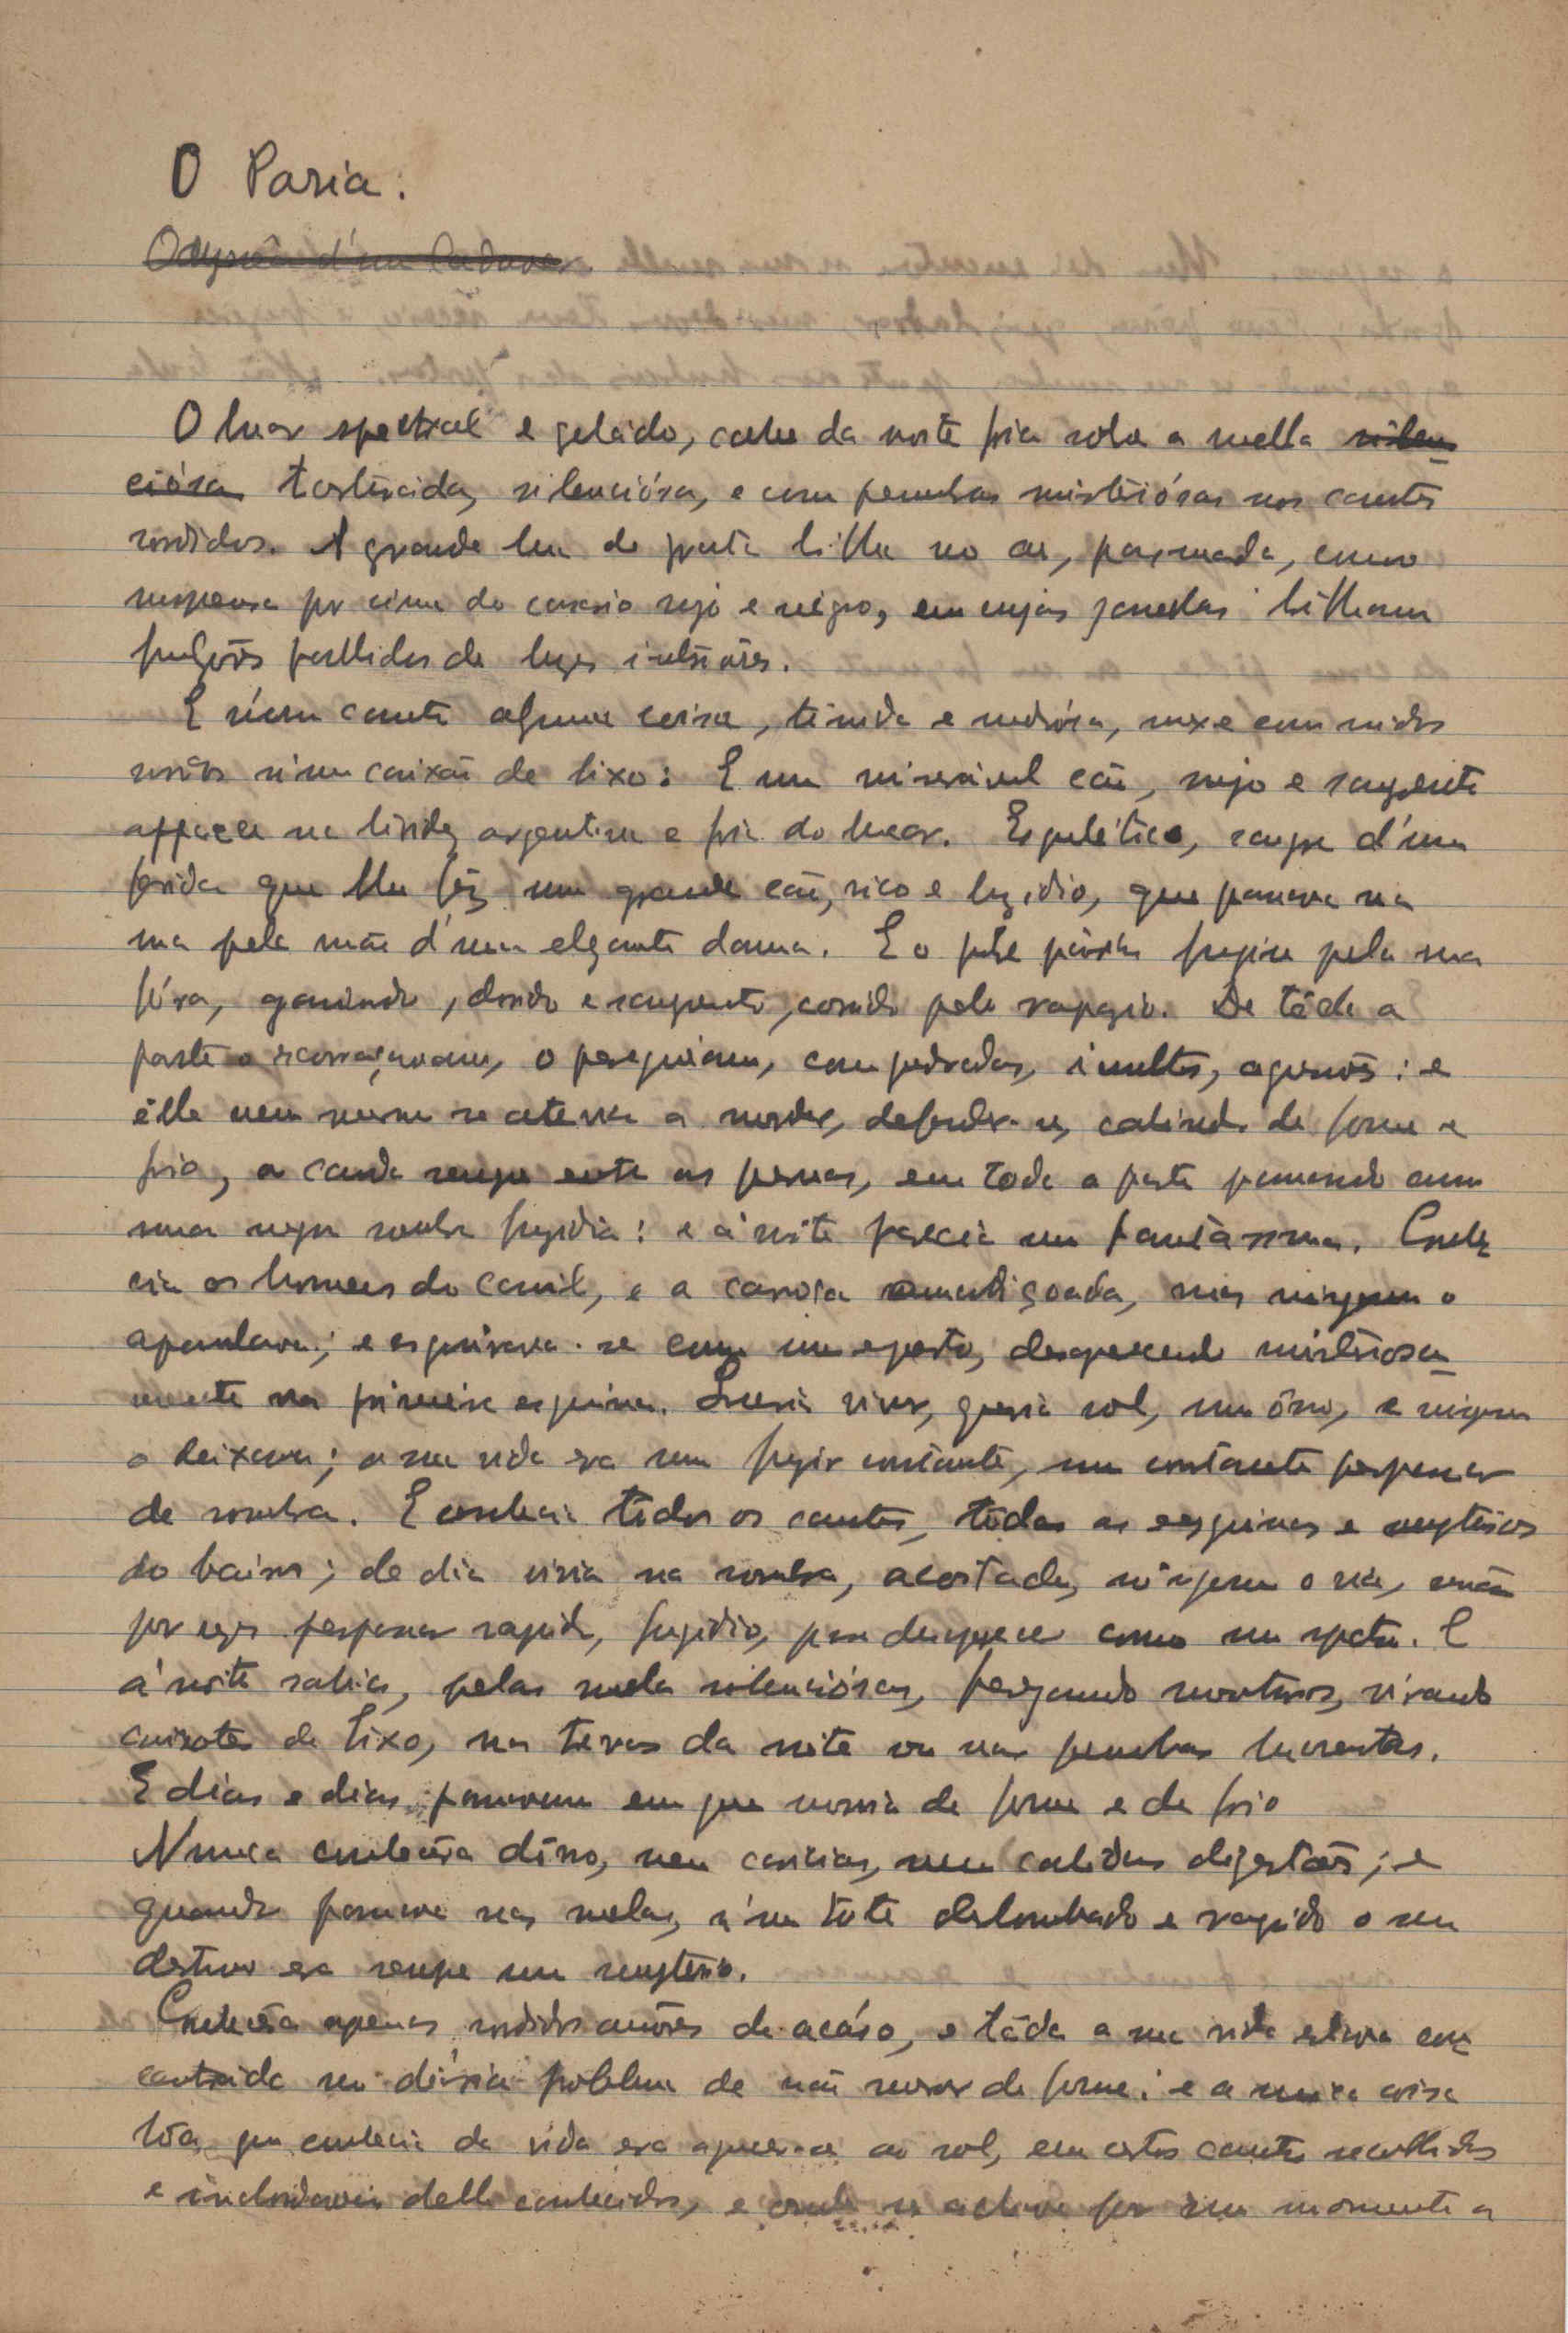 O Paria.
O luar spectral e gelado, cahe da noite fria sobre a viella silen-
ciósa tortuida, silenciósa, e com penumbras misteriósas nos cantos
sordidos. A grande lua de prata brilha no ar, pasmada, como
suspensa por cima do casario sujo e negro, em cujas janellas brilham
fulgôres pallidos de luzes interiores.
E n'um canto alguma coisa, timida e medrósa, mexe com ruidos
n'um caixão de lixo: E um miseravel cão, sujo e sangrento
apparece na lividez argentina e fria do luar. Esquelético, sangra d'uma
ferida que lhe fêz um grande cão, rico e luzidio, que passava na
rua pela mão d'uma elegante dama. E o pobre párias fugira pela rua
fóra, ganindo, dorido e sangrento, corrido pelo rapazio. De tôda a
parte o escorraçavam, o perseguiam, com pedradas, insultos, agressões: e
êlle nem mesmo se atrevia a morder, defender-se, cahindo de fome e
frio, a cauda sempre entre as pernas, em toda a parte passando como
uma negra sombra fugidia: e á noite parecia um fantàsma. Conhe-
cia os homens do canil, e a carroça amaldiçoada, mas ninguem o
apanhava; e esquivava-se como um esperto, desaparecendo misteriosa-
mente na primeira esquina. Queria viver, queria sol, um ôsso, e ninguem
o deixava; a sua vida era um fugir constante, um constante perpassar
de sombra. E conhecia tôdos os cantos, tôdas as esquinas e mysterios
do bairro; de dia vivia na sombra, acostado, ninguem o via, senão
por vezes perpassar rapido, fugidio, para desaparecer como um spectro. E
á noite sahia, pelas viellas silenciósas, farejando monturos, virando
caixotes de lixo, nas trevas da noite ou nas penumbras luarentas.
E dias e dias passavam em que morria de fome e de frio
Nunca conhecêra dôno, nem caricias, nem calidas digestões; e
quando passava nas viellas, n'um trote deslombado e rapido o seu
destino era sempre um mysterio.
Conhecêra apenas sordidos amôres de acáso, e tôda a sua vida estava con-
centrada no diário problema de não morrer de fome: e a unica coisa
bôa que conhecia da vida era aquecer-se ao sol, em certos cantos recolhidos
e d'elle conhecidos, e onde se achava por um momento a